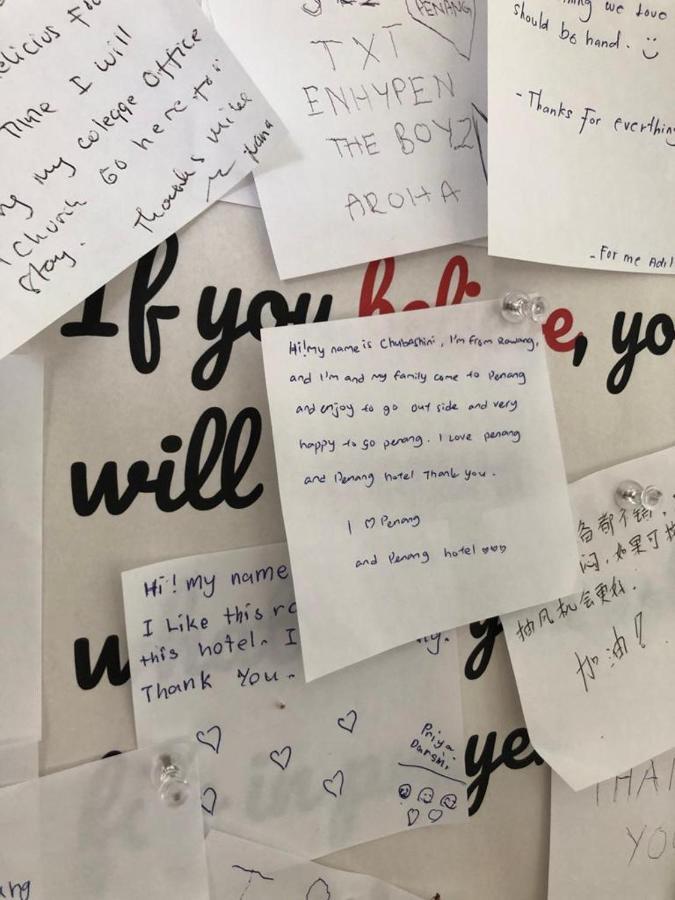 Time I will
my colegge Office
Church Go here for
Stay. Thanks
PENANG
TXT
ENHYPEN
THE BOYZ
AROHA
we love
should be hand. :)
- Thanks For everthing
- For me
If you believe, yo
will
Hi! my name is Chubashini, I'm from Rawang,
and I'm and my family come to Penang
and enjoy to go out side and very
happy to go penang. I Love penang
and Penang hotel Thank you.
I ♡ Penang
and Penang hotel ♡♡♡
Hi! my name
I Like this
this hotel. I
Thank You.
Priya
Darsini
备都不错,
闷,如果可
抽风机会更好.
加油!
ye
THA
YO